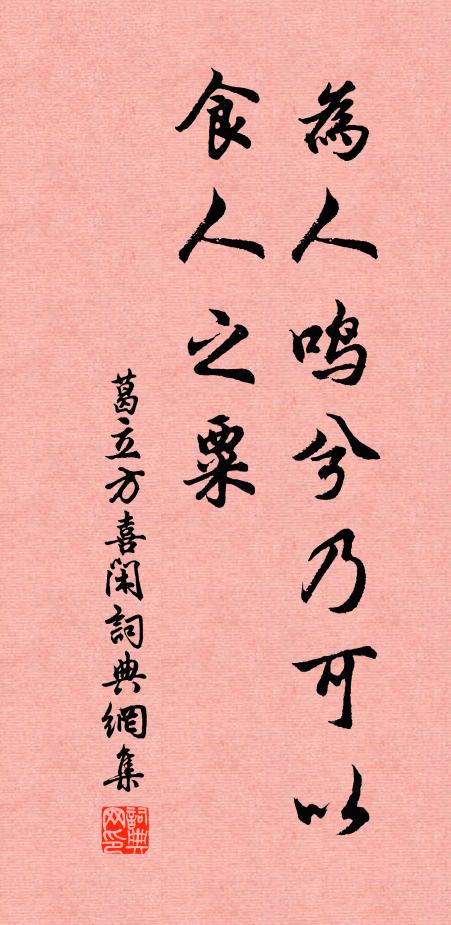 為人鸣兮乃可以
食人之粟
葛立方喜闲詞典網集
詞典网印